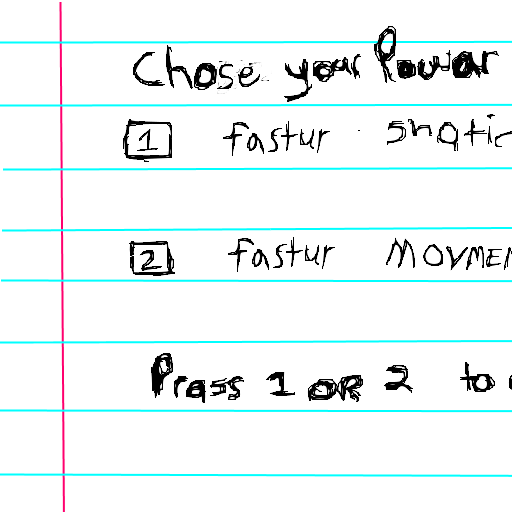 Chose your Powar
1 fastur shotin
2 fastur MOVMEN
Prass 1 OR 2 to